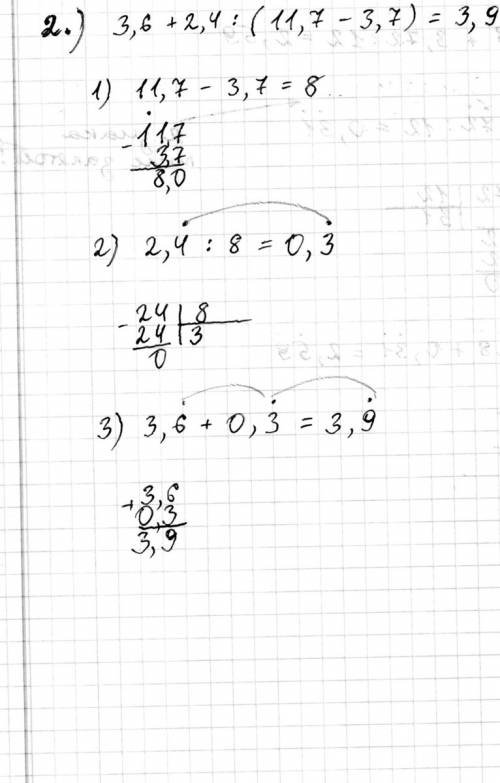 2.) 3,6 + 2,4 : (11,7 - 3,7) = 3,9
1) 11,7 - 3,7 = 8
- 117
37
8,0
2) 2,4 : 8 = 0,3
- 24 | 8
24 | 3
0
3) 3,6 + 0,3 = 3,9
+ 3,6
0,3
3,9